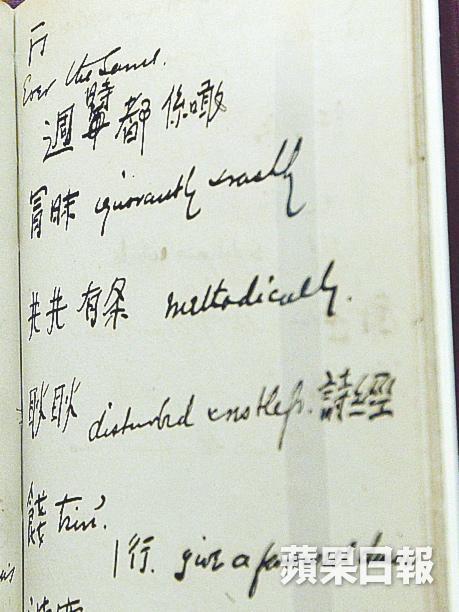 Ever the same.
週 都係噉
冒昧 ignorantly & rashly
井井有条 methodically.
耿耿 disturbed & restless. 詩經
餞 tsin'.
行. give a
蘋果日報